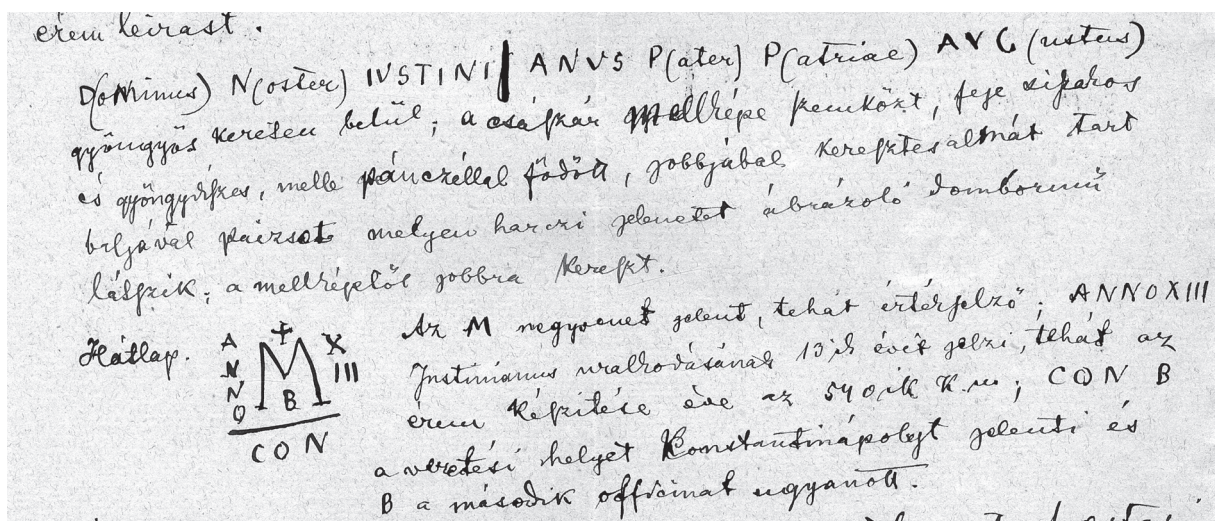 érem leirast.
D(ominus) N(oster) IVSTINI ANVS P(ater) P(atriae) AVG(ustus)
gyöngyös kereten belül; a császár mellképe szemközt, feje sisakos
és gyöngydíszes, melle pánczéllal födött, jobbjában keresztes almát tart
baljával paizsot melyen harczi jelenetet ábrázoló dombormű
látszik; a mellképtől jobbra kereszt.
Hátlap.
ANNO
M
B
XIII
CON
Az M negyvenet jelent, tehát értékjelző; ANNO XIII
Justinianus uralkodásának 13ik évét jelzi, tehát az
érem készitése éve az 540ik K. u; CON B
a veretési helyet Konstantinápolyt jelenti és
B a második officinat ugyanott.